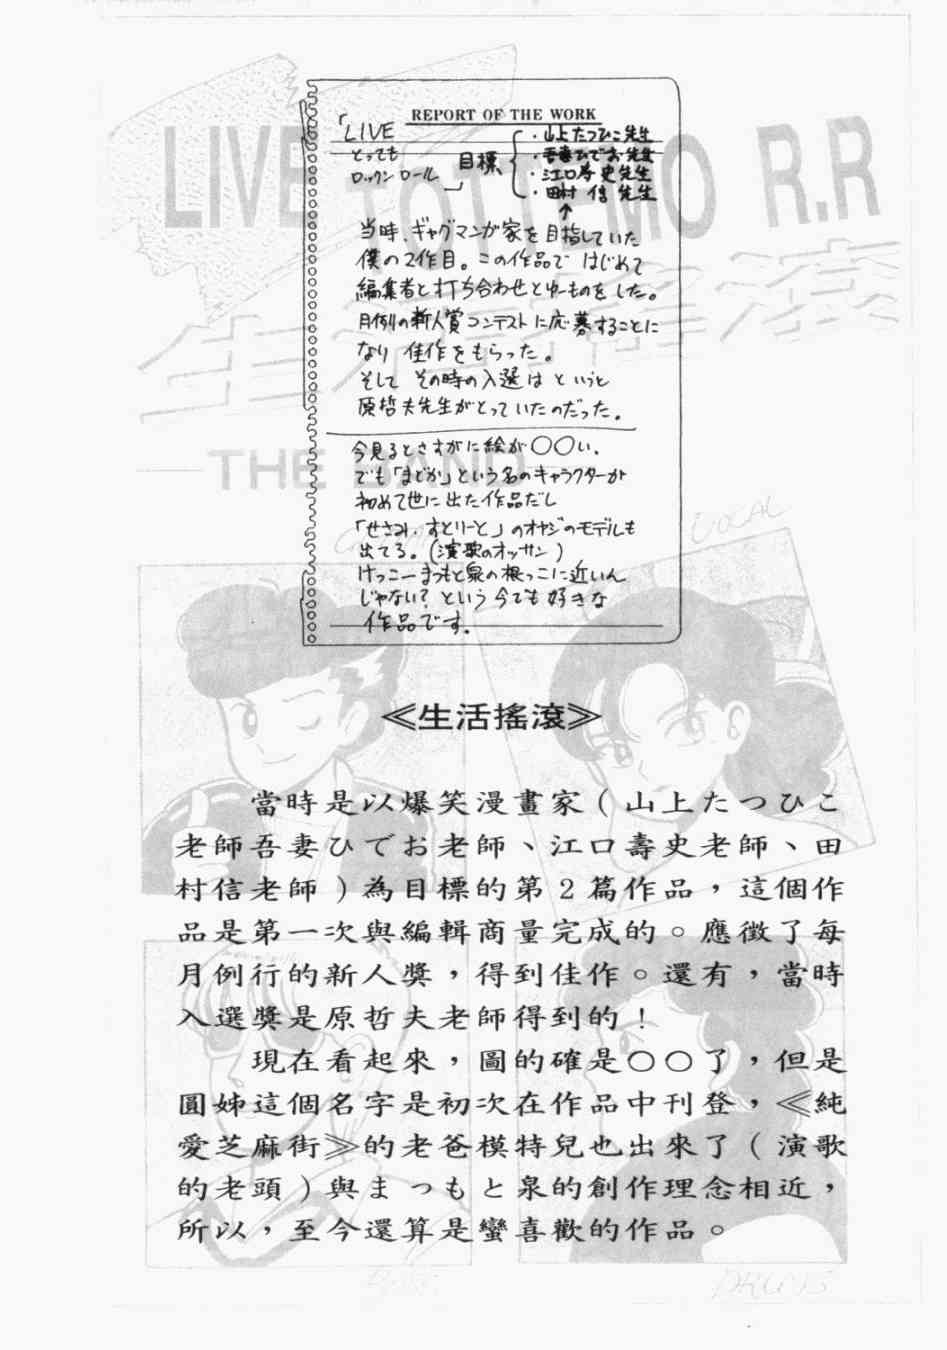 LIVE TOTTEMO R.R
生活搖滾
THE BAND
VOCAL
REPORT OF THE WORK
「LIVE
とっても
ロックンロール」
目標
・山上たつひこ先生
・吾妻ひでお先生
・江口寿史先生
・田村 信 先生
↑
当時、ギャグマンガ家を目指していた
僕の2作目。この作品で はじめて
編集者と打ち合わせとゆーものをした。
月例の新人賞コンテストに応募することに
なり 佳作をもらった。
そして その時の入選は というと
原哲夫先生がとっていたのだった。
今見るとさすがに絵が〇〇い.
でも「まどか」という名のキャラクターが
初めて世に出た作品だし
「せさみ・すとりーと」のオヤジのモデルも
出てる。(演歌のオッサン)
けっこーまつもと泉の根っこに近いん
じゃない? という今でも好きな
作品です.
≪生活搖滾≫
當時是以爆笑漫畫家(山上たつひこ
老師吾妻ひでお老師、江口壽史老師、田
村信老師)為目標的第2篇作品，這個作
品是第一次與編輯商量完成的。應徵了每
月例行的新人獎，得到佳作。還有，當時
入選獎是原哲夫老師得到的！
現在看起來，圖的確是〇〇了，但是
圓姊這個名字是初次在作品中刊登，≪純
愛芝麻街≫的老爸模特兒也出來了(演歌
的老頭)與まつもと泉的創作理念相近，
所以，至今還算是蠻喜歡的作品。
DRUMS